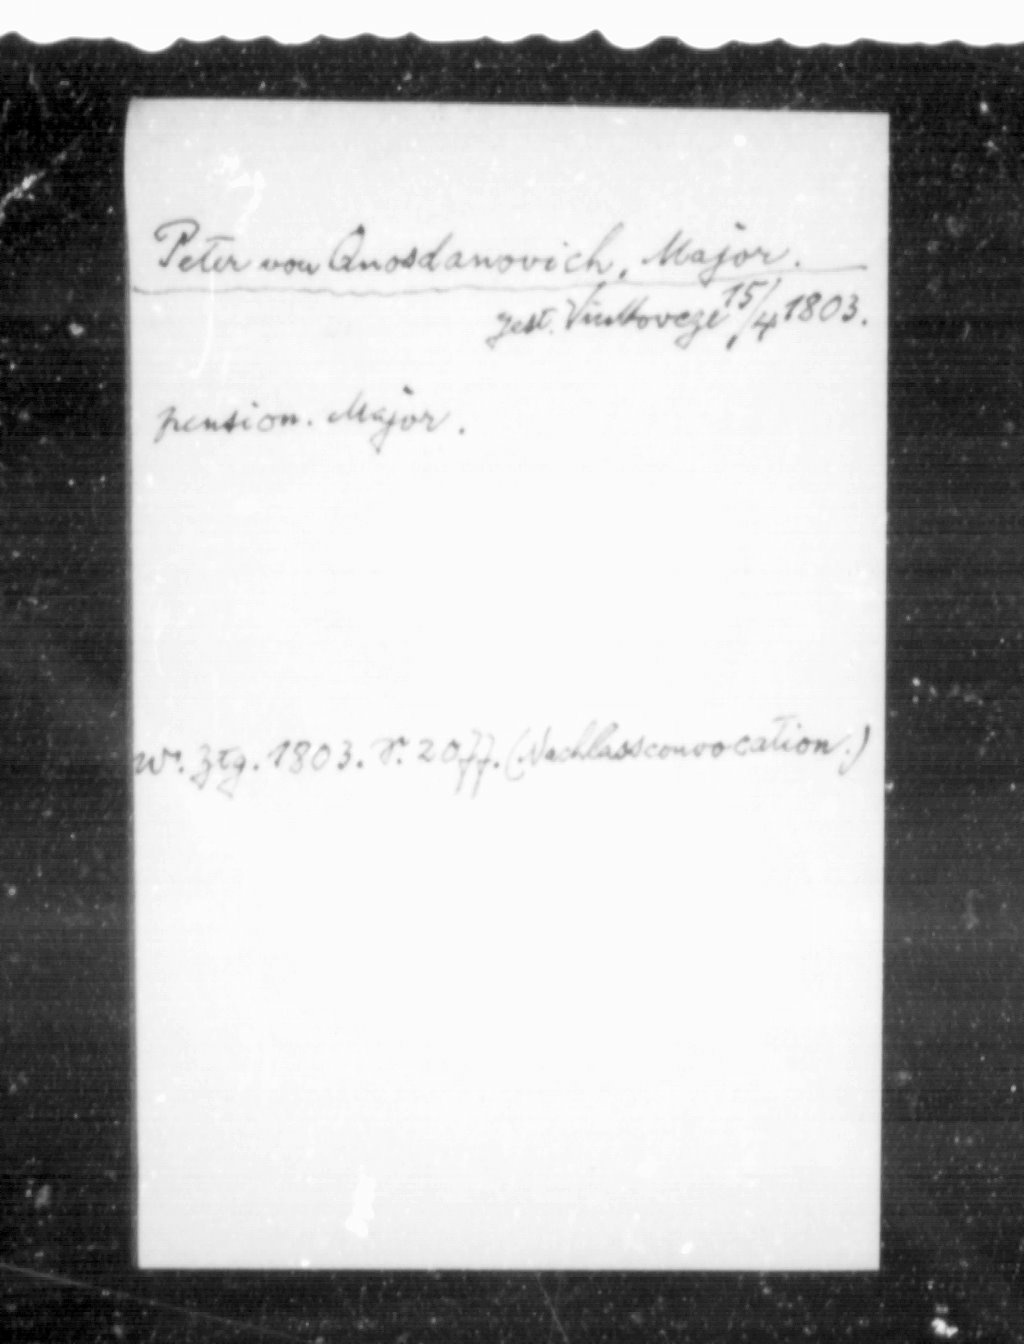 Peter von Quosdanovich, Major.
gest. Vinkovcze 15/4 1803.
pension. Major.
W. Ztg. 1803. S. 2077. (Nachlassconvocation.)